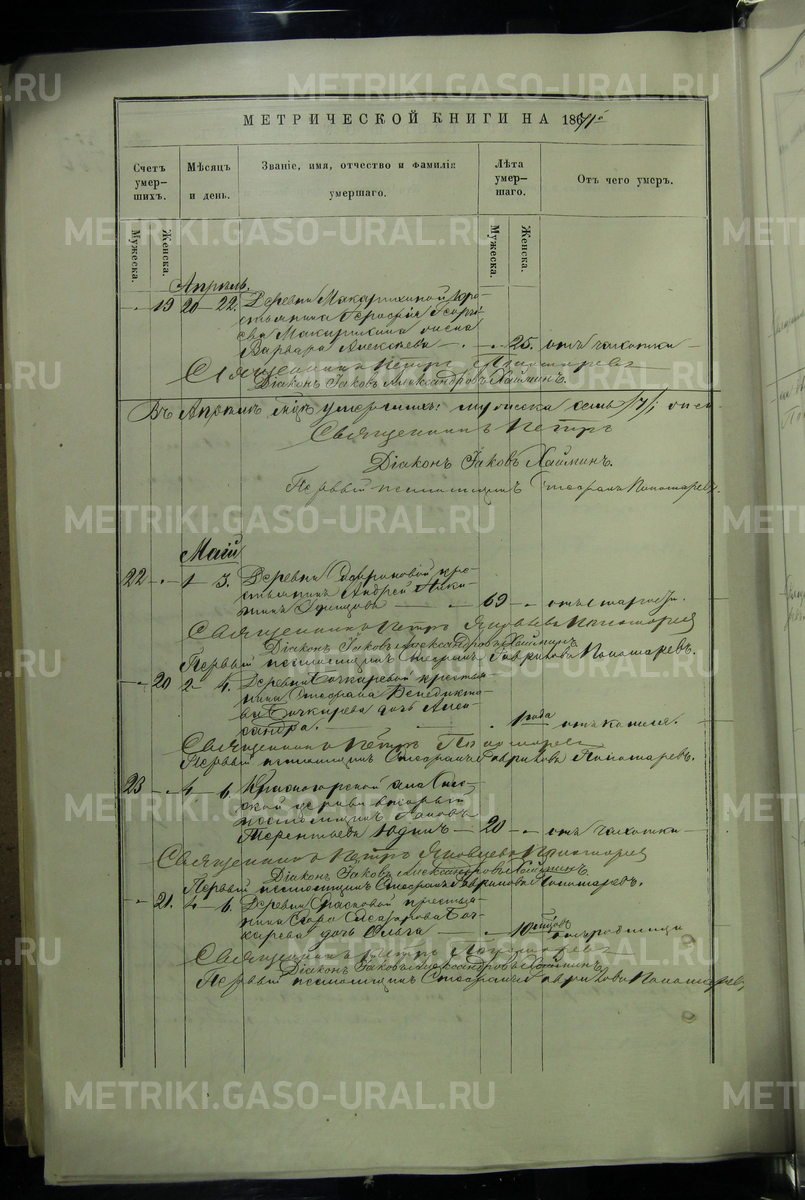 METRIKI.GASO-URAL.RU
МЕТРИЧЕСКОЙ КНИГИ НА 1867
Счетъ умер- шихъ.
Мѣсяцъ и день.
Званіе, имя, отчество и фамилія умершаго.
Лѣта умер- шаго.
Отъ чего умеръ.
Мужеска.
Женска.
Мужеска.
Женска.
Апрѣль.
19 20 22. Деревни Макарихиной кре-
стьянина
Макарихина жена
Варвара Алексѣева 25. отъ чахотки
Священникъ Петръ Пономаревъ
Діаконъ Іаковъ Александровъ Хайминъ.
Въ Апрѣлѣ умершихъ: мужеска семь /7/, жен-
Священникъ Петръ
Діаконъ Іаковъ Хайминъ.
Первый псаломщикъ Стефанъ Пономаревъ.
Май
22 1 3. Деревни кре-
стьянинъ Андрей
69 отъ старости.
Священникъ Петръ Яковлевъ Пономаревъ
Діаконъ Іаковъ Александровъ Хайминъ
Первый псаломщикъ Стефанъ Гавриловъ Пономаревъ.
20 2 4. Деревни Бочкаревой крестья-
нина Стефана Венедикто-
ва Бочкарева дочь Алек-
сандра. 1 года отъ кашля.
Священникъ Петръ Пономаревъ
Первый псаломщикъ Стефанъ Гавриловъ Пономаревъ.
23 4 6. Красногорской
ской церкви вторый
псаломщикъ
Терентьевъ Юдинъ 20 отъ чахотки
Священникъ Петръ Яковлевъ Пономаревъ
Діаконъ Іаковъ Александровъ Хайминъ.
Первый псаломщикъ Стефанъ Гавриловъ Пономаревъ.
21. 4 6. Деревни крестья-
нина Боч-
карева дочь Ольга 10 мѣсяцовъ
Священникъ Петръ Пономаревъ
Діаконъ Іаковъ Александровъ Хайминъ
Первый псаломщикъ Стефанъ Гавриловъ Пономаревъ